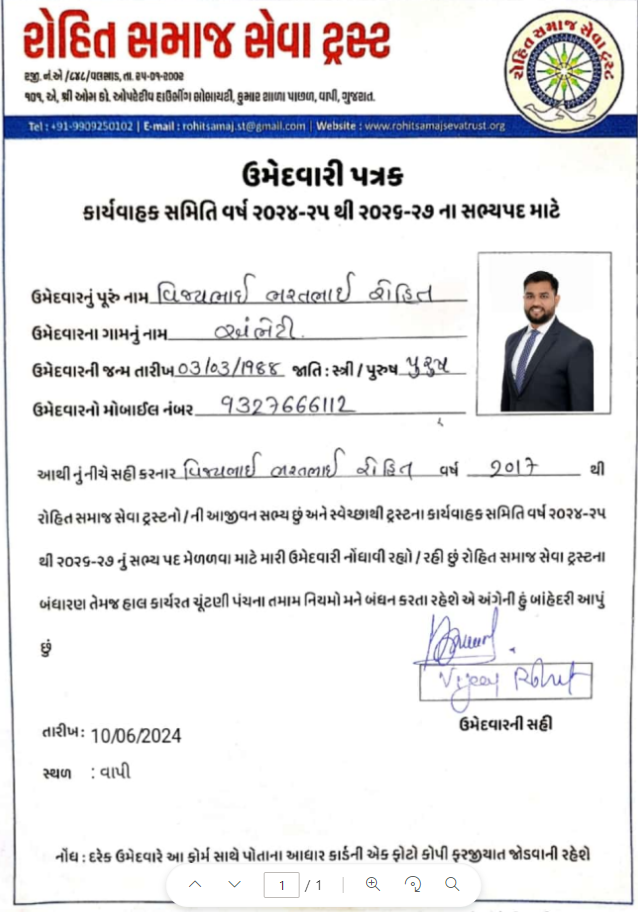 રોહિત સમાજ સેવા ટ્રસ્ટ
રજી. નં. એ /૮૪૮/ વલસાડ, તા. ૨૫-૦૧-૨૦૦૨
૧૦૧, એ, શ્રી ઓમ કો. ઓપરેટીવ હાઉસીંગ સોસાયટી, કુમાર શાળા પાછળ, વાપી, ગુજરાત.
રોહિત સમાજ સેવા ટ્રસ્ટ
Tel : +91-9909250102 | E-mail : rohitsamaj.st@gmail.com | Website : www.rohitsamajsevatrust.org
ઉમેદવારી પત્રક
કાર્યવાહક સમિતિ વર્ષ ૨૦૨૪-૨૫ થી ૨૦૨૬-૨૭ ના સભ્યપદ માટે
ઉમેદવારનું પૂરું નામ વિજયભાઈ ભરતભાઈ રોહિત
ઉમેદવારના ગામનું નામ અંભેટી.
ઉમેદવારની જન્મ તારીખ 03/03/1988 જાતિ : સ્ત્રી / પુરુષ પુરુષ
ઉમેદવારનો મોબાઈલ નંબર 9327666112
આથી નું નીચે સહી કરનાર વિજયભાઈ ભરતભાઈ રોહિત વર્ષ 2017 થી
રોહિત સમાજ સેવા ટ્રસ્ટનો / ની આજીવન સભ્ય છું અને સ્વેચ્છાથી ટ્રસ્ટના કાર્યવાહક સમિતિ વર્ષ ૨૦૨૪-૨૫
થી ૨૦૨૬-૨૭ નું સભ્ય પદ મેળળવા માટે મારી ઉમેદવારી નોંધાવી રહ્યો / રહી છું રોહિત સમાજ સેવા ટ્રસ્ટના
બંધારણ તેમજ હાલ કાર્યરત ચૂંટણી પંચના તમામ નિયમો મને બંધન કરતા રહેશે એ અંગેની હું બાંહેદરી આપું
છું
Vijay Rohit
ઉમેદવારની સહી
તારીખ: 10/06/2024
સ્થળ : વાપી
નોંધ : દરેક ઉમેદવારે આ ફોર્મ સાથે પોતાના આધાર કાર્ડની એક ફોટો કોપી ફરજીયાત જોડવાની રહેશે
1 / 1